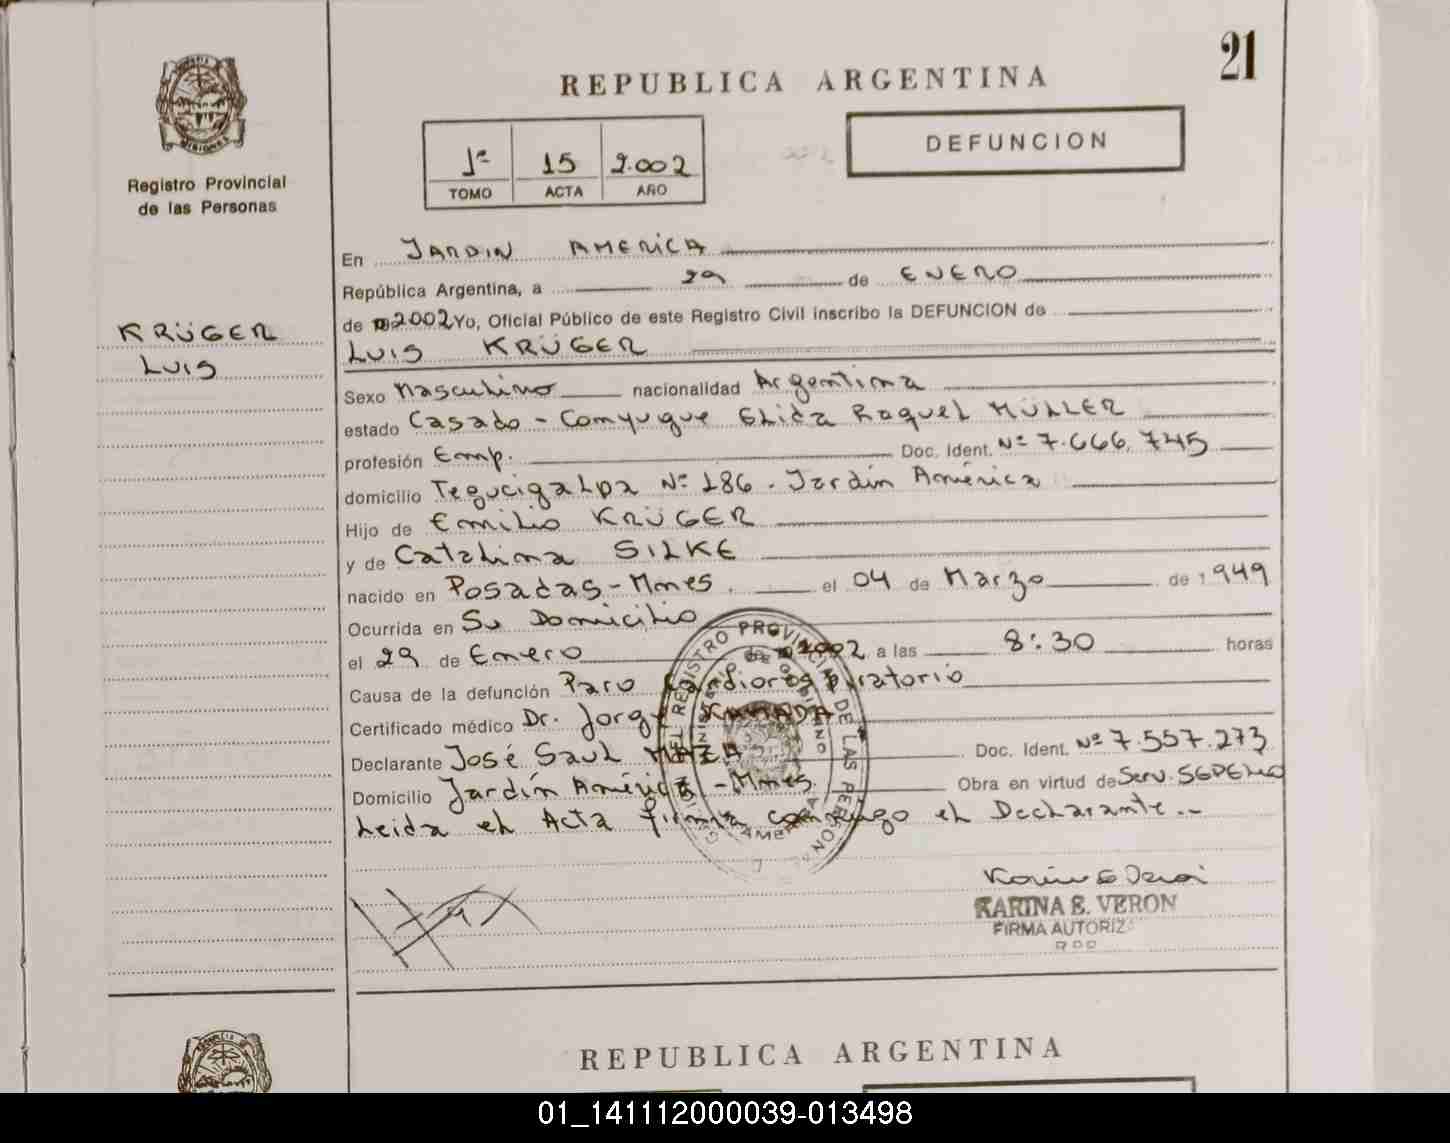 21
REPUBLICA ARGENTINA
DEFUNCION
MISIONES
Registro Provincial
de las Personas
1º 15 2.002
TOMO ACTA AÑO
KRÜGER
LUIS
En JARDIN AMERICA
República Argentina, a 29 de ENERO
de 2002 Yo, Oficial Público de este Registro Civil inscribo la DEFUNCION de
LUIS KRÜGER
Sexo Masculino nacionalidad Argentina
estado Casado - Conyugue Elida Raquel MÜLLER
profesión Emp. Doc. Ident. Nº 7.666.745
domicilio Tegucigalpa Nº 186. Jardín América
Hijo de Emilio KRÜGER
y de Catalina SILKE
nacido en Posadas - Mnes. el 04 de Marzo de 1949
Ocurrida en Su Domicilio
el 29 de Enero de 2002 a las 8:30 horas
Causa de la defunción Paro Cardiorespiratorio
Certificado médico Dr. Jorge KAMADA
Declarante José Saul MAZA Doc. Ident. Nº 7.557.273
Domicilio Jardín América - Mnes Obra en virtud de Serv. SEPELIO
Leida el Acta firma conmigo el Declarante.-
REGISTRO PROVINCIAL DE LAS PERSONAS
MINISTERIO DE GOBIERNO
AMERICA
KARINA E. VERON
FIRMA AUTORIZ
REPUBLICA ARGENTINA
01_141112000039-013498